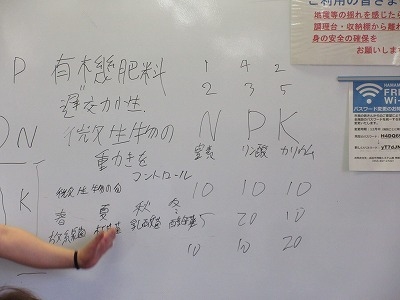 ご利用の皆さま
地震等の揺れを感じたら
調理台・収納棚から離れ
身の安全の確保を
お願いしま
P 有機肥料 1 4 2
遅効力性 2 3 5
ON 微生物の N P K
動きを 窒素 リン酸 カリウム
コントロール
K 微生物の 10 10 10
春 夏 秋 冬 5 20 10
放線菌 乳酸菌 酵母菌
10 10 20
FREE
Wi-